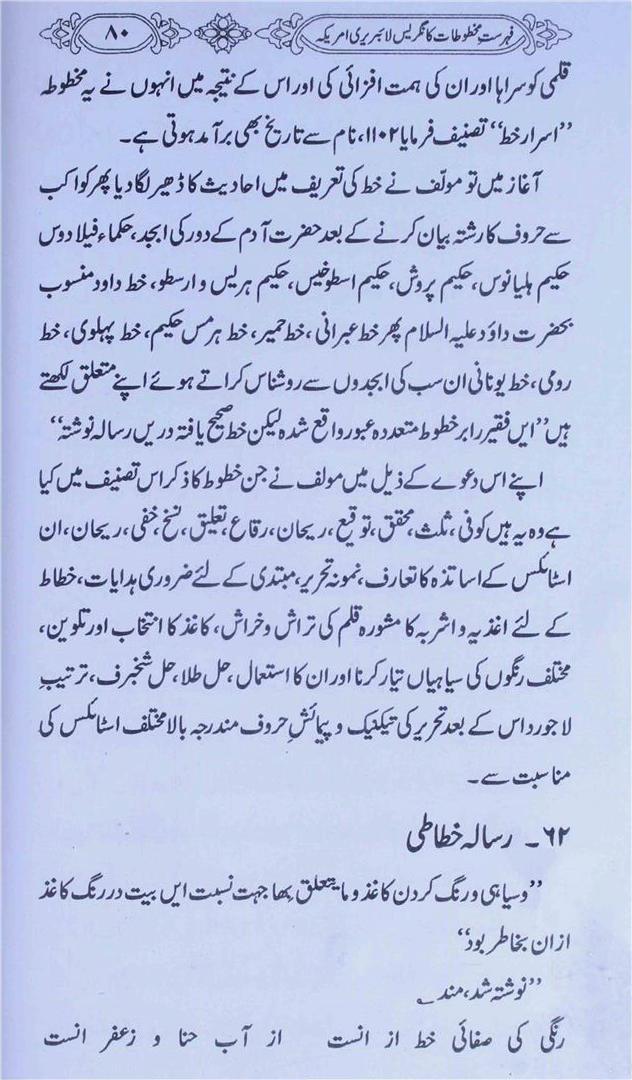 فہرستِ مخطوطات کانگریس لائبریری امریکہ
۸۰
قلمی کو سراہا اور ان کی ہمت افزائی کی اور اس کے نتیجہ میں انہوں نے یہ مخطوطہ
”اسرار خط“ تصنیف فرمایا ۱۱۰۲، نام سے تاریخ بھی برآمد ہوتی ہے۔
آغاز میں تو مولّف نے خط کی تعریف میں احادیث کا ڈھیر لگا دیا پھر کواکب
سے حروف کا رشتہ بیان کرنے کے بعد حضرت آدم کے دور کی ابجد، حکماء فیلادوس
حکیم ہلیانوس، حکیم پروش، حکیم اسطوخیس، حکیم ہریس و ارسطو، خط داود منسوب
بحضرت داؤد علیہ السلام پھر خط عبرانی، خط حمیر، خط ہرمس حکیم، خط پہلوی، خط
رومی، خط یونانی ان سب کی ابجدوں سے روشناس کراتے ہوئے اپنے متعلق لکھتے
ہیں ”ایں فقیر را بر خطوط متعددہ عبور واقع شدہ لیکن خط صحیح یافتہ دریں رسالہ نوشتہ“
اپنے اس دعوے کے ذیل میں مولف نے جن خطوط کا ذکر اس تصنیف میں کیا
ہے وہ یہ ہیں کوفی، ثلث، محقق، توقیع، ریحان، رقاع، تعلیق، نسخ، خفی، ریحان، ان
اسٹائلس کے اساتذہ کا تعارف، نمونہ تحریر، مبتدی کے لئے ضروری ہدایات، خطاط
کے لئے اغذیہ و اشربہ کا مشورہ قلم کی تراش و خراش، کاغذ کا انتخاب اور تلوین،
مختلف رنگوں کی سیاہیاں تیار کرنا اور ان کا استعمال، حل طلا، حل شنجرف، ترتیبِ
لاجورد اس کے بعد تحریر کی تیکنیک و پیمائشِ حروف مندرجہ بالا مختلف اسٹائلس کی
مناسبت سے۔
۶۲۔ رسالہ خطاطی
”وسیاہی و رنگ کردن کاغذ و ما یتعلق بھا جہت نسبت ایں بیت در رنگ کاغذ
ازان بخاطر بود“
”نوشتہ شد، مند ؂
رنگی کی صفائی خط از انست از آب حنا و زعفر انست